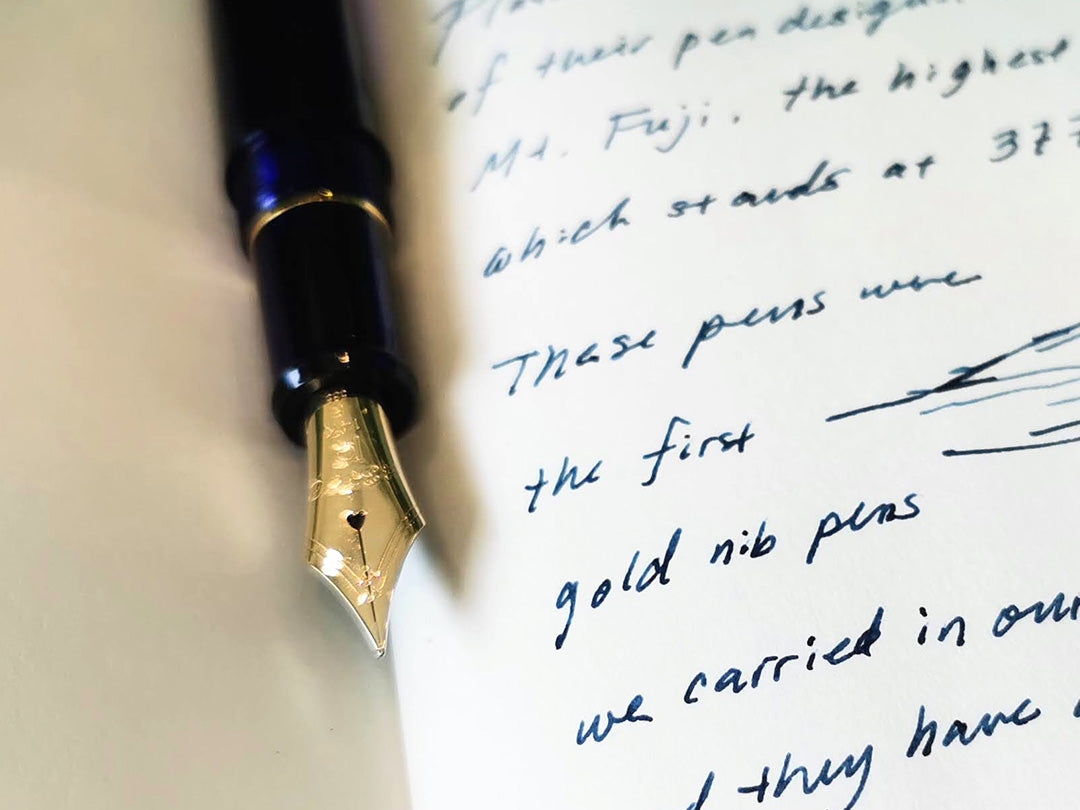 of their pen design
Mt. Fuji. the highest
which stands at 377
These pens were
the first
gold nib pens
we carried in our
they have